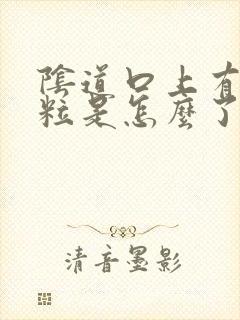 陰道口上有
粒是怎麼了
清音墨影